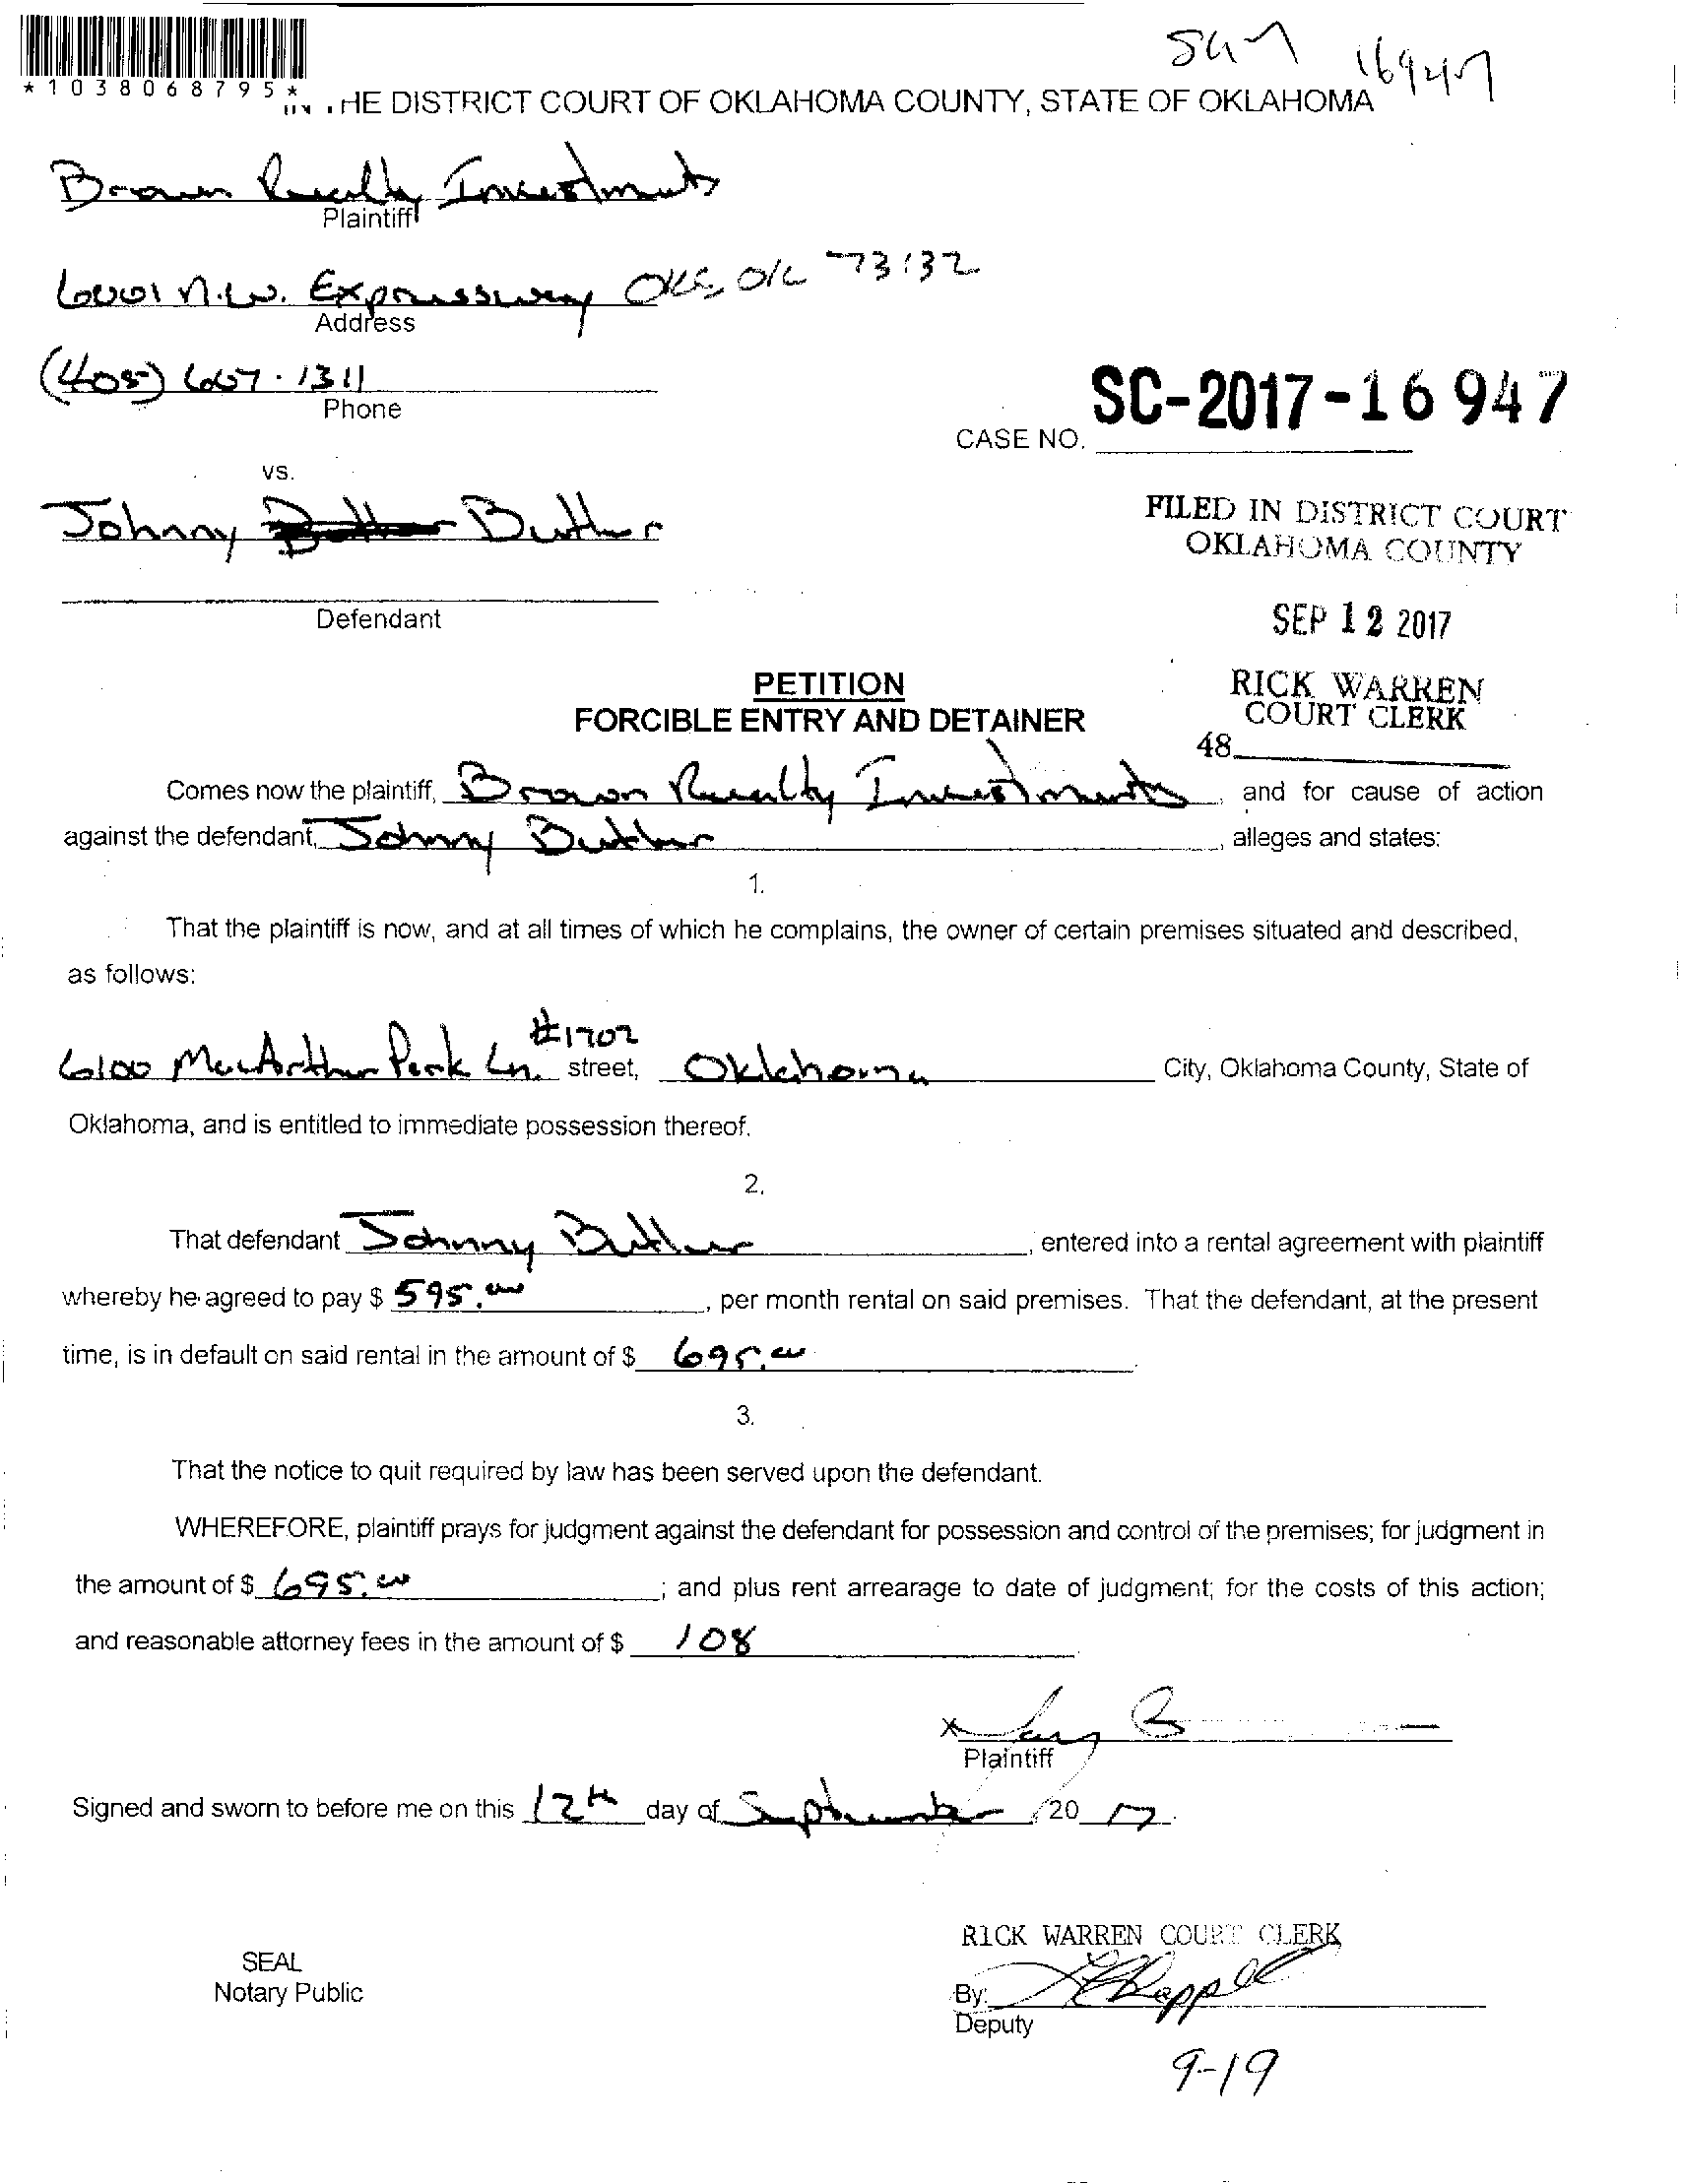 SC17 16947
*1038068795*
IN THE DISTRICT COURT OF OKLAHOMA COUNTY, STATE OF OKLAHOMA
Brown Realty Investments
Plaintiff
6001 N.W. Expressway OKC, OK 73132
Address
(405) 667-1311
Phone
SC-2017-16947
CASE NO.
vs.
Johnny Butler
FILED IN DISTRICT COURT
OKLAHOMA COUNTY
Defendant
SEP 12 2017
PETITION
RICK WARREN
FORCIBLE ENTRY AND DETAINER
COURT CLERK
48
Comes now the plaintiff, Brown Realty Investments, and for cause of action
against the defendant, Johnny Butler, alleges and states:
1.
That the plaintiff is now, and at all times of which he complains, the owner of certain premises situated and described,
as follows:
6100 MacArthur Park Ln. #1702 street, Oklahoma City, Oklahoma County, State of
Oklahoma, and is entitled to immediate possession thereof.
2.
That defendant Johnny Butler, entered into a rental agreement with plaintiff
whereby he agreed to pay $ 595.00, per month rental on said premises. That the defendant, at the present
time, is in default on said rental in the amount of $ 695.00.
3.
That the notice to quit required by law has been served upon the defendant.
WHEREFORE, plaintiff prays for judgment against the defendant for possession and control of the premises; for judgment in
the amount of $ 695.00; and plus rent arrearage to date of judgment; for the costs of this action;
and reasonable attorney fees in the amount of $ 108.
x
Plaintiff
Signed and sworn to before me on this 12th day of September, 20 17.
RICK WARREN COURT CLERK
SEAL
Notary Public
By:
Deputy
9-19